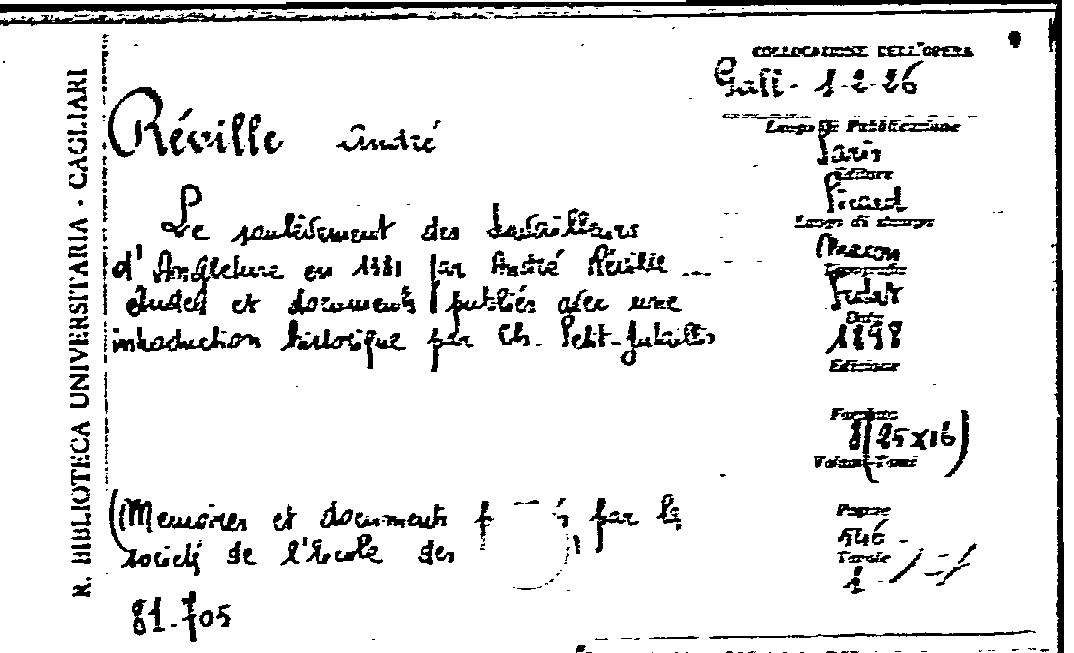 R. BIBLIOTECA UNIVERSITARIA - CAGLIARI
COLLOCAZIONE DELL'OPERA
Gall. 1-2-26
Réville André
Luogo di Pubblicazione
Paris
Editore
Picard
Le soulèvement des travailleurs
Luogo di stampa
Macon
d'Angleterre en 1381 par André Réville ...
Tipografia
Protat
études et documents publiés avec une
Data
1898
introduction historique par Ch. Petit-Dutaillis
Edizione
Formato
8(25x16)
Volumi-Tomi
(Memoires et documents par la
Pagine
societé de l'école des
Tavole
1
81-705